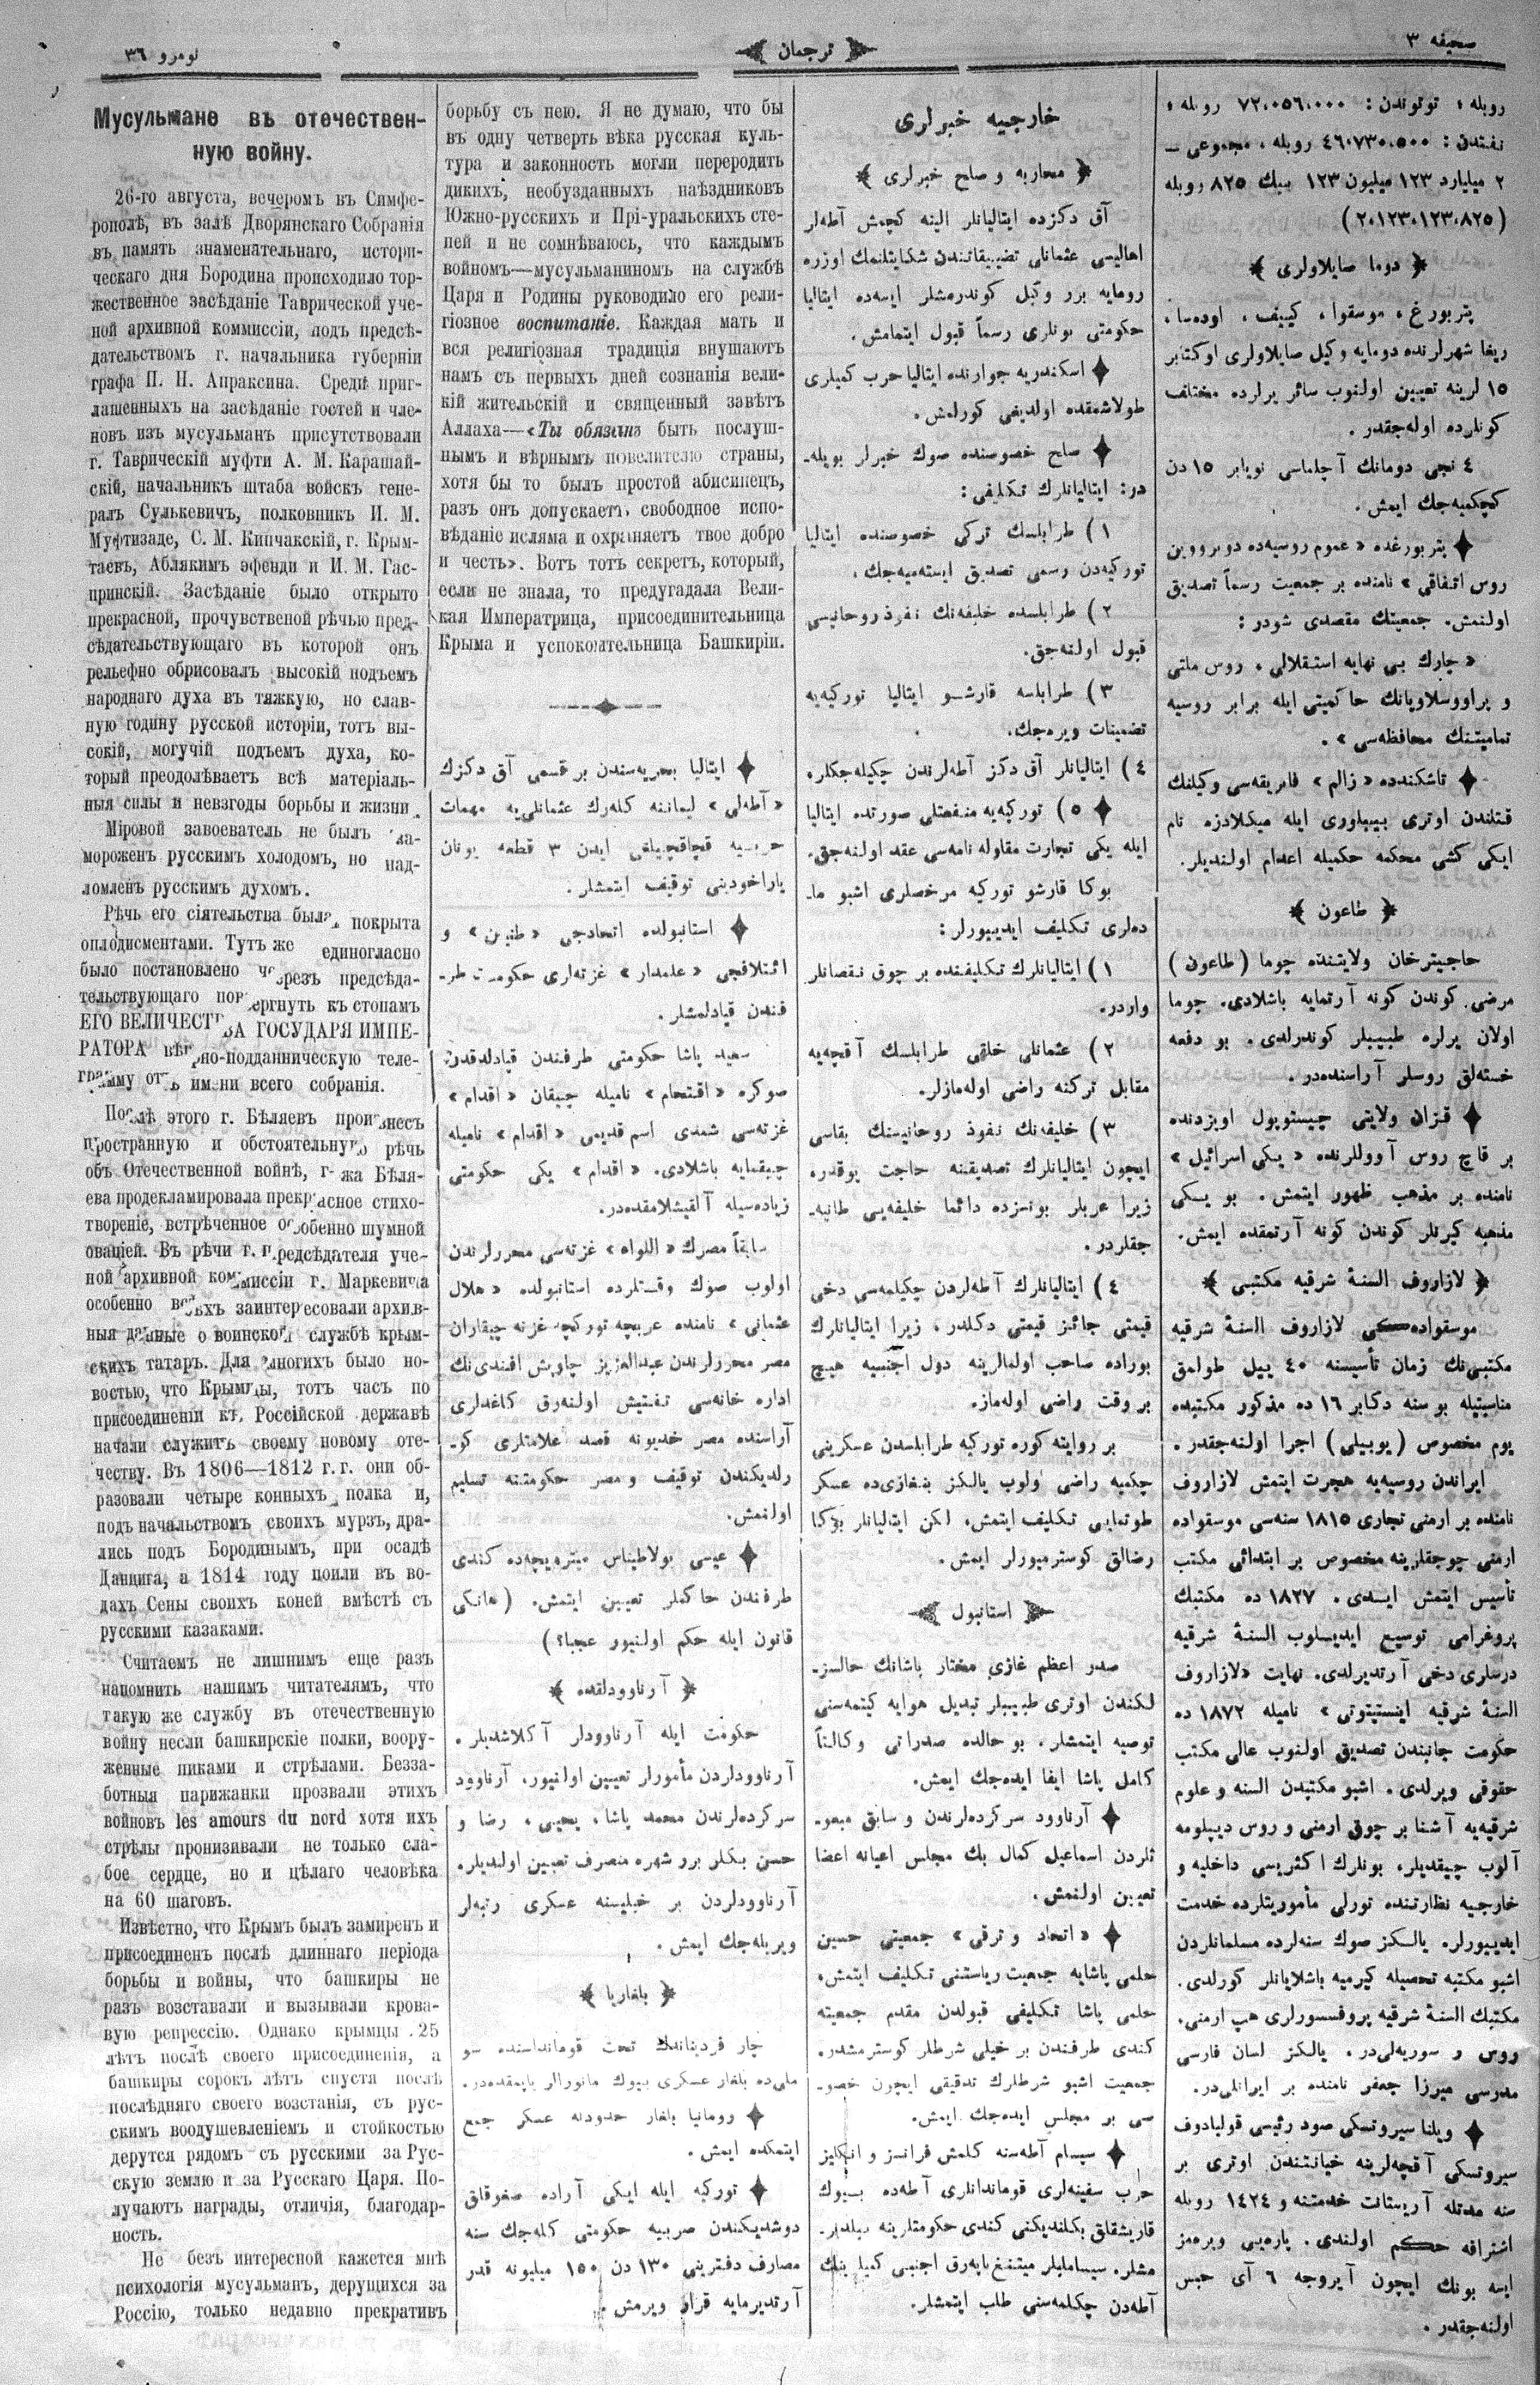 صحیفه ٣
ترجمان
نومرو ٣٦
روبله ؛ توتوندن : ٧٢،٠٥٦،٠٠٠ روبله ؛
نفتدن : ٤٦،٧٣٠،٥٠٠ روبله ، مجموعی —
٢ میلیارد ١٢٣ میلیون ١٢٣ بیك ٨٢٥ روبله
(٢،١٢٣،١٢٣،٨٢٥)
﴿ دوما صایلاولری ﴾
پتربورغ ، موسقوا ، کییف ، اوده‌سا ،
ریغا شهرلرنده دومایه وکیل صایلاولری اوکتابر
١٥ لرینه تعیین اولنوب سائر یرلرده مختلف
کونلرده اوله‌جقدر .
٤ نجی دومانك آچلماسی نویابر ١٥ دن
کچکمیه‌جك ایمش .
پتربورغده « عموم روسیه‌ده دوبرووین
روس اتفاقی » نامنده بر جمعیت رسماً تصدیق
اولنمش. جمعیتك مقصدی شودر :
« چارك بی نهایه استقلالی ، روس ملتی
و پراووسلاویانك حاکمیتی ایله برابر روسیه
تمامیتنك محافظه‌سی » .
تاشکندده « زالم » فابریقه‌سی وکیلنك
قتلندن اوتری بیبلوری ایله میکلادزه نام
ایکی کشی محکمه حکمیله اعدام اولندیلر.
﴿ طاعون ﴾
حاجیترخان ولایتنده چوما (طاعون)
مرضی کوندن کونه آرتمایه باشلادی. چوما
اولان یرلره طبیبلر کوندرلدی. بو دفعه
خسته‌لق روسلر آراسنده‌در.
قزان ولایتی چیستوپول اویزدنده
بر قاچ روس آووللرنده « یکی اسرائیل »
نامنده بر مذهب ظهور ایتمش. بو یکی
مذهبه کیرنلر کوندن کونه آرتمقده ایمش.
﴿ لازاروف السنهٔ شرقیه مکتبی ﴾
موسقواده‌کی لازاروف السنهٔ شرقیه
مکتبی‌نك زمان تأسیسنه ٤٠ ییل طولمق
مناسبتیله بو سنه دکابر ١٦ ده مذکور مکتبده
یوم مخصوص (یوبیلی) اجرا اولنه‌جقدر.
ایراندن روسیه‌یه هجرت ایتمش لازاروف
نامنده بر ارمنی تجاری ١٨١٥ سنه‌سی موسقواده
ارمنی چوجقلرینه مخصوص بر ابتدائی مکتب
تأسیس ایتمش ایدی. ١٨٢٧ ده مکتبك
پروغرامی توسیع ایدیلوب السنهٔ شرقیه
درسلری دخی آرتدیرلدی. نهایت «لازاروف
السنهٔ شرقیه اینستیتوتی» نامیله ١٨٧٢ ده
حکومت جانبندن تصدیق اولنوب عالی مکتب
حقوقی ویرلدی. اشبو مکتبدن السنه و علوم
شرقیه‌یه آشنا بر چوق ارمنی و روس دیپلومه
آلوب چیقدیلر، بونلرك اکثریسی داخلیه و
خارجیه نظارتنده تورلی مأموریتلرده خدمت
ایدییورلر. یالکز صوك سنه‌لرده مسلمانلردن
اشبو مکتبه تحصیله کیرمیه باشلایانلر کورلدی.
مکتبك السنهٔ شرقیه پروفسسورلری هپ ارمنی،
روس و سوریه‌لی‌در. یالکز لسان فارسی
مدرسی میرزا جعفر نامنده بر ایرانلی‌در.
ویلنا سیروتسکی صود رئیسی قولیادوف
سیروتسکی آقچه‌لرینه خیانتندن اوتری بر
سنه مدتله آریستانت خدمتنه و ١٤٢٤ روبله
اشترافه حکم اولندی. پاره‌یی ویره‌مز
ایسه بونك ایچون آیروجه ٦ آی حبس
اولنه‌جقدر.
خارجیه خبرلری
﴿ محاربه و صلح خبرلری ﴾
آق دکزده ایتالیانلر الینه کچمش آطه‌لر
اهالیسی عثمانلی تضییقاتندن شکایتلنمك اوزره
رومایه برر وکیل کوندرمشلر ایسه‌ده ایتالیا
حکومتی بونلری رسماً قبول ایتمامش.
اسکندریه جوارنده ایتالیا حرب کمیلری
طولاشمقده اولدیغی کورلمش.
صلح خصوصنده صوك خبرلر بویله‌-
در: ایتالیانلرك تکلیفی:
١) طرابلسك ترکی خصوصنده ایتالیا
تورکیه‌دن رسمی تصدیق ایسته‌میه‌جك ،
٢) طرابلسده خلیفه‌نك نفوذ روحانیسی
قبول اولنه‌جق.
٣) طرابلسه قارشو ایتالیا تورکیه‌یه
تضمینات ویره‌جك،
٤) ایتالیانلر آق دکز آطه‌لرندن چکیله‌جکلر،
٥) تورکیه‌یه منفعتلی صورتده ایتالیا
ایله یکی تجارت مقاوله نامه‌سی عقد اولنه‌جق.
بوکا قارشو تورکیه مرخصلری اشبو ما-
ده‌لری تکلیف ایدییورلر:
١) ایتالیانلرك تکلیفنده بر چوق نقصانلر
واردر.
٢) عثمانلی خلقی طرابلسك آقچه‌یه
مقابل ترکنه راضی اوله‌مازلر.
٣) خلیفه‌نك نفوذ روحانیسنك بقاسی
ایچون ایتالیانلرك تصدیقنه حاجت یوقدر،
زیرا عربلر بونسزده دائما خلیفه‌یی طانیه-
جقلردر.
٤) ایتالیانلرك آطه‌لردن چکیلمه‌سی دخی
قیمتی جائز قیمتی دکلدر، زیرا ایتالیانلرك
بوراده صاحب اولمالرینه دول اجنبیه هیچ
بر وقت راضی اوله‌ماز.
بر روایته کوره تورکیه طرابلسدن عسکرینی
چکمیه راضی اولوب یالکز بنغازی‌ده عسکر
طوتمایی تکلیف ایتمش، لکن ایتالیانلر بوکا
رضالق کوسترمیورلر ایمش.
استانبول
صدر اعظم غازی مختار پاشانك حالسز-
لکندن اوتری طبیبلر تبدیل هوایه کیتمه‌سنی
توصیه ایتمشلر. بو حالده صدراتی وکالتاً
کامل پاشا ایفا ایده‌جك ایمش.
آرناوود سرکرده‌لرندن و سابق مبعو-
ثلردن اسماعیل کمال بك مجلس اعیانه اعضا
تعیین اولنمش.
« اتحاد و ترقی » جمعیتی حسین
حلمی پاشایه جمعیت ریاستنی تکلیف ایتمش،
حلمی پاشا تکلیفی قبولدن مقدم جمعیته
کندی طرفندن بر خیلی شرطلر کوسترمشدر.
جمعیت اشبو شرطلرك تدقیقی ایچون خصو-
صی بر مجلس ایده‌جك ایمش.
سیسام آطه‌سنه کلمش فرانسز و انکلیز
حرب سفینه‌لری قوماندانلری آطه‌ده بیوك
قاریشقلق بکلندیکنی کندی حکومتلرینه بیلدیر-
مشلر. سیساملیلر میتینغ یاپه‌رق اجنبی کمیلرینك
آطه‌دن چکلمه‌سنی طلب ایتمشلر.
ایتالیا بحریه‌سندن بر قسمی آق دکزك
«آطه‌لی» لیماننه کله‌رك عثمانلی‌یه مهمات
حربیه قچاقچیلغی ایدن ٣ قطعه یونان
پاراخودینی توقیف ایتمشلر.
استانبولده اتحادجی « طنین » و
ائتلافجی « علمدار » غزته‌لری حکومت طر-
فندن قپادلمشلر.
سعید پاشا حکومتی طرفندن قپادلدقدن
صوکره « اقتحام » نامیله چیقان « اقدام »
غزته‌سی شمدی اسم قدیمی « اقدام » نامیله
چیقمایه باشلادی. « اقدام » یکی حکومتی
زیاده‌سیله آلقیشلامقده‌در.
سابقاً مصرك « اللواء » غزته‌سی محررلرندن
اولوب صوك وقتلرده استانبولده « هلال
عثمانی » نامنده عربچه تورکچه غزته چیقاران
مصر محررلرندن عبدالعزیز چاویش افندی‌نك
اداره خانه‌سی تفتیش اولنه‌رق کاغدلری
آراسنده مصر خدیونه قصد علامتلری کو-
رلدیکندن توقیف و مصر حکومتنه تسلیم
اولنمش.
عیسی بولاطیناس میترویچه‌ده کندی
طرفندن حاکملر تعیین ایتمش. (هانکی
قانون ایله حکم اولنیور عجبا؟)
﴿ آرناوودلقده ﴾
حکومت ایله آرناوودلر آکلاشدیلر.
آرناوودلردن مأمورلر تعیین اولنیور. آرناوود
سرکرده‌لرندن محمد پاشا، یحیی، رضا و
حسن بکلر برر شهره متصرف تعیین اولندیلر.
آرناوودلردن بر خیلیسنه عسکری رتبه‌لر
ویریله‌جك ایمش.
﴿ بلغاریا ﴾
چار فردیناندك تحت قومانداسنده سو
ملی‌ده بلغار عسکری بیوك مانورالر یاپمقده‌در.
رومانیا بلغار حدودنه عسکر جمع
ایتمکده ایمش.
تورکیه ایله ایکی آراده صغوقلق
دوشدیکندن صربیه حکومتی کله‌جك سنه
مصارف دفترینی ١٣٠ دن ١٥٠ میلیونه قدر
آرتدیرمایه قرار ویرمش.
Мусульмане въ отечествен-
ную войну.
26-го августа, вечеромъ въ Симфе-
рополѣ, въ залѣ Дворянскаго Собранія
въ память знаменательнаго, истори-
ческаго дня Бородина происходило тор-
жественное засѣданіе Таврической уче-
ной архивной коммиссіи, подъ предсѣ-
дательствомъ г. начальника губерніи
графа П. Н. Апраксина. Средѣ приг-
лашенныхъ на засѣданіе гостей и чле-
новъ изъ мусульманъ присутствовали
г. Таврическій муфти А. М. Карашай-
скій, начальникъ штаба войскъ гене-
ралъ Сулькевичъ, полковникъ И. М.
Муфтизаде, С. М. Кипчакскій, г. Крым-
таевъ, Аблякимъ эфенди и И. М. Гас-
принскій. Засѣданіе было открыто
прекрасной, прочувственой рѣчью пред-
сѣдательствующаго въ которой онъ
рельефно обрисовалъ высокій подъемъ
народнаго духа въ тяжкую, но слав-
ную годину русской исторіи, тотъ вы-
сокій, могучій подъемъ духа, ко-
торый преодолѣваетъ всѣ матеріаль-
ныя силы и невзгоды борьбы и жизни.
Міровой завоеватель не былъ за-
мороженъ русскимъ холодомъ, но над-
ломленъ русскимъ духомъ.
Рѣчь его сіятельства была покрыта
оплодисментами. Тутъ же единогласно
было постановлено черезъ предсѣда-
тельствующаго повергнуть къ стопамъ
ЕГО ВЕЛИЧЕСТВА ГОСУДАРЯ ИМПЕ-
РАТОРА вѣрно-подданническую теле-
грамму отъ имени всего собранія.
Послѣ этого г. Бѣляевъ произнесъ
пространную и обстоятельную рѣчь
объ Отечественной войнѣ, г-жа Бѣля-
ева продекламировала прекрасное стихо-
твореніе, встрѣченное особенно шумной
оваціей. Въ рѣчи г. предсѣдателя уче-
ной архивной коммиссіи г. Маркевича
особенно всѣхъ заинтересовали архив-
ныя данные о воинской службѣ крым-
скихъ татаръ. Для многихъ было но-
востью, что Крымцы, тотъ часъ по
присоединеніи къ Россійской державѣ
начали служить своему новому оте-
честву. Въ 1806—1812 г.г. они об-
разовали четыре конныхъ полка и,
подъ начальствомъ своихъ мурзъ, дра-
лись подъ Бородинымъ, при осадѣ
Данцига, а 1814 году поили въ во-
дахъ Сены своихъ коней вмѣстѣ съ
русскими казаками.
Считаемъ не лишнимъ еще разъ
напомнить нашимъ читателямъ, что
такую же службу въ отечественную
войну несли башкирскіе полки, воору-
женные пиками и стрѣлами. Безза-
ботныя парижанки прозвали этихъ
войновъ les amours du nord хотя ихъ
стрѣлы пронизивали не только сла-
бое сердце, но и цѣлаго человѣка
на 60 шаговъ.
Извѣстно, что Крымъ былъ замиренъ и
присоединенъ послѣ длиннаго періода
борьбы и войны, что башкиры не
разъ возставали и вызывали крова-
вую репрессію. Однако крымцы 25
лѣтъ послѣ своего присоединенія, а
башкиры сорокъ лѣтъ спустя послѣ
послѣдняго своего возстанія, съ рус-
скимъ воодушевленіемъ и стойкостью
дерутся рядомъ съ русскими за Рус-
скую землю и за Русскаго Царя. По-
лучаютъ награды, отличія, благодар-
ность.
Не безъ интересной кажется мнѣ
психологія мусульманъ, дерущихся за
Россію, только недавно прекративъ
борьбу съ нею. Я не думаю, что бы
въ одну четверть вѣка русская куль-
тура и законность могли переродить
дикихъ, необузданныхъ наѣздниковъ
Южно-русскихъ и Прі-уральскихъ сте-
пей и не сомнѣваюсь, что каждымъ
войномъ—мусульманиномъ на службѣ
Царя и Родины руководило его рели-
гіозное воспитаніе. Каждая мать и
вся религіозная традиція внушаютъ
намъ съ первыхъ дней сознанія вели-
кій жительскій и священный завѣтъ
Аллаха—«Ты обязанъ быть послуш-
нымъ и вѣрнымъ повелителю страны,
хотя бы то былъ простой абисинецъ,
разъ онъ допускаетъ свободное испо-
вѣданіе исляма и охраняетъ твое добро
и честь». Вотъ тотъ секретъ, который,
если не знала, то предугадала Вели-
кая Императрица, присоединительница
Крыма и успокоятельница Башкиріи.